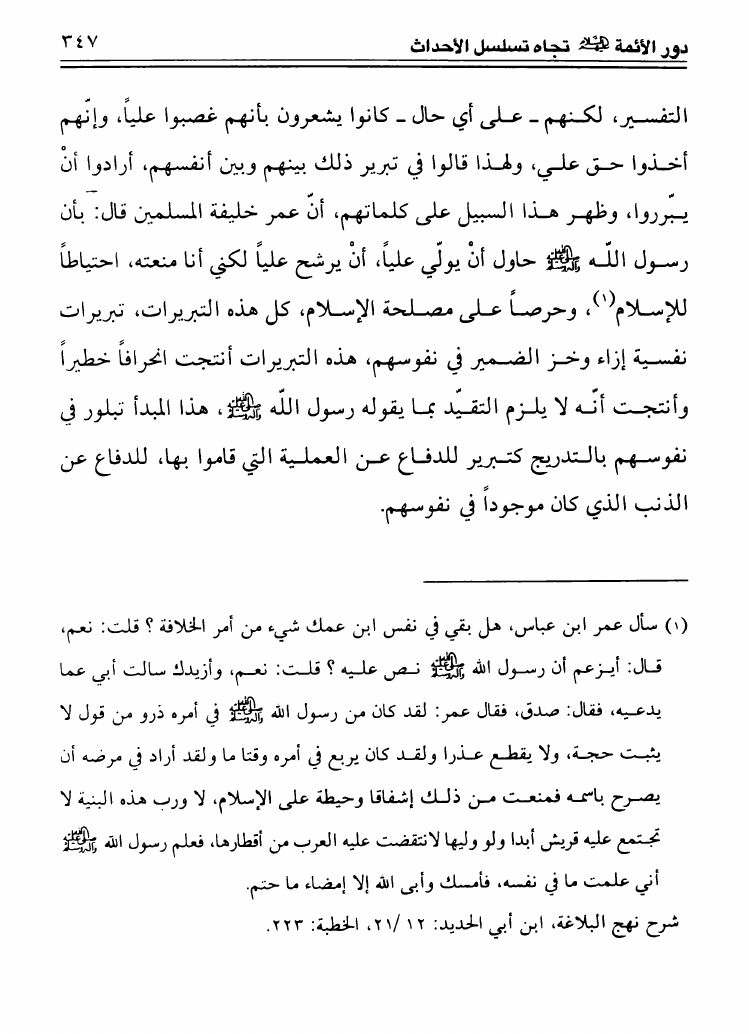 دور الأئمة عليهم السلام تجاه تسلسل الأحداث ٣٤٧
التفسير، لكنهم ـ على أي حال ـ كانوا يشعرون بأنهم غصبوا علياً، وإنّهم
أخذوا حق علي، ولهذا قالوا في تبرير ذلك بينهم وبين أنفسهم، أرادوا أنْ
يبّرروا، وظهر هذا السبيل على كلماتهم، أنّ عمر خليفة المسلمين قال: بأن
رسول اللّه ﷺ حاول أنْ يولّي علياً، أنْ يرشح علياً لكني أنا منعته، احتياطاً
للإسلام(١)، وحرصاً على مصلحة الإسلام، كل هذه التبريرات، تبريرات
نفسية إزاء وخز الضمير في نفوسهم، هذه التبريرات أنتجت انحرافاً خطيراً
وأنتجت أنّه لا يلزم التقيّد بما يقوله رسول اللّه ﷺ، هذا المبدأ تبلور في
نفوسهم بالتدريج كتبرير للدفاع عن العملية التي قاموا بها، للدفاع عن
الذنب الذي كان موجوداً في نفوسهم.
(١) سأل عمر ابن عباس، هل بقي في نفس ابن عمك شيء من أمر الخلافة ؟ قلت: نعم،
قال: أيزعم أن رسول الله ﷺ نص عليه ؟ قلت: نعم، وأزيدك سالت أبي عما
يدعيه، فقال: صدق، فقال عمر: لقد كان من رسول الله ﷺ في أمره ذرو من قول لا
يثبت حجة، ولا يقطع عذرا ولقد كان يربع في أمره وقتا ما ولقد أراد في مرضه أن
يصرح باسمه فمنعت من ذلك إشفاقا وحيطة على الإسلام، لا ورب هذه البنية لا
تجتمع عليه قريش أبدا ولو وليها لانتقضت عليه العرب من أقطارها، فعلم رسول الله ﷺ
أني علمت ما في نفسه، فأمسك وأبى الله إلا إمضاء ما حتم.
شرح نهج البلاغة، ابن أبي الحديد: ١٢ /٢١، الخطبة: ٢٢٣.